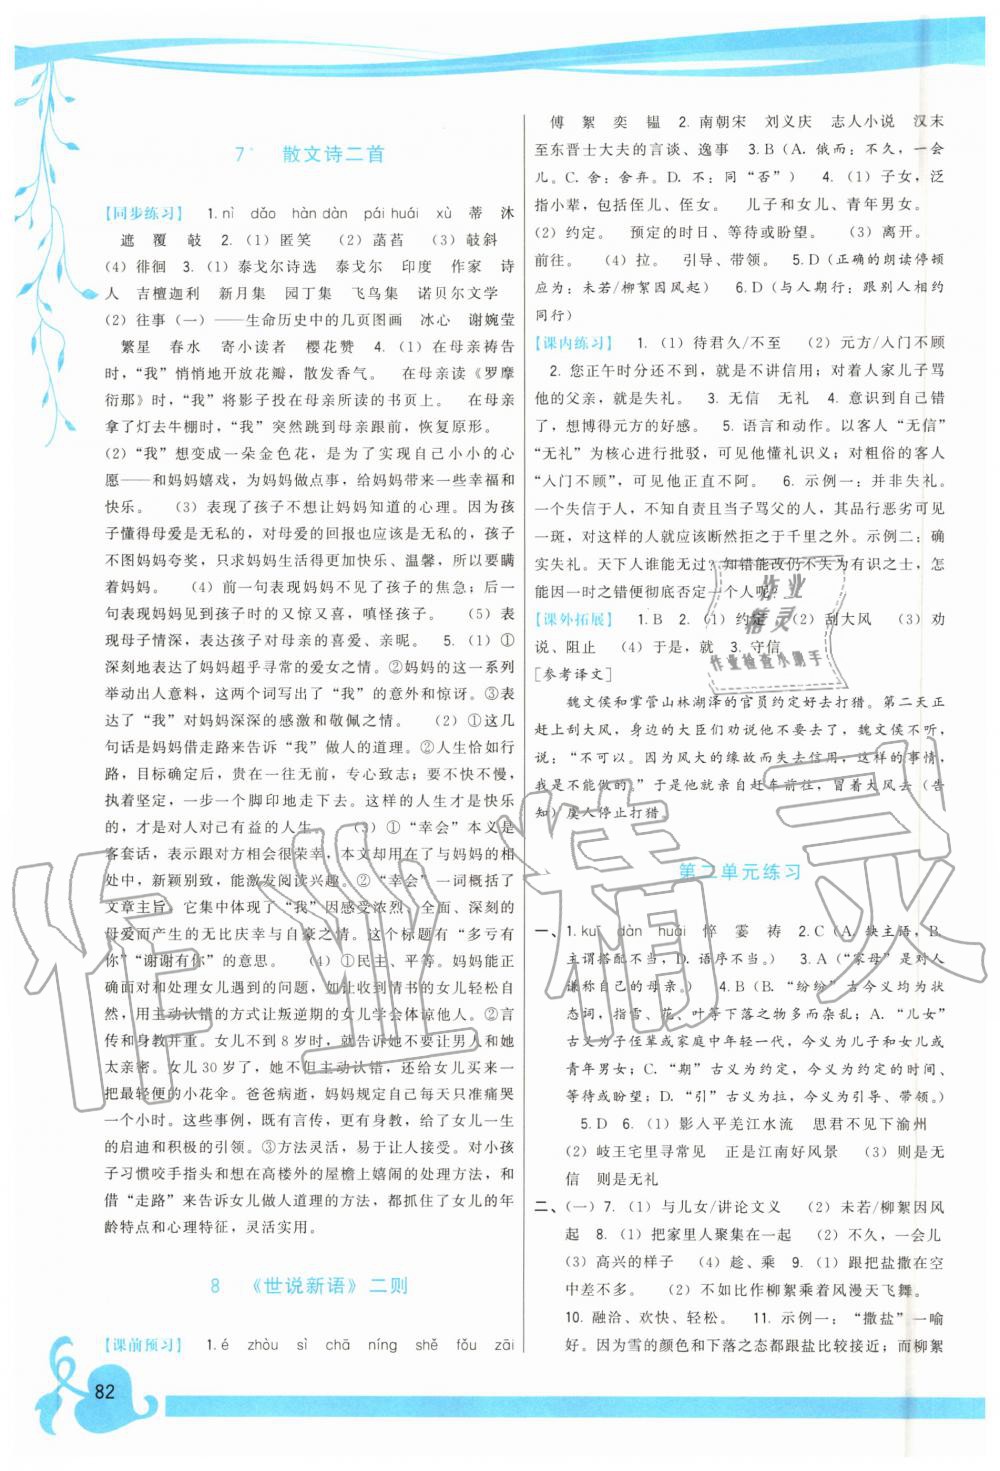 7* 散文诗二首
【同步练习】 1. nì dǎo hàn dàn pái huái xù 蒂 沐
遮 覆 攲 2.(1)匿笑 (2)菡萏 (3)攲斜
(4)徘徊 3.(1)泰戈尔诗选 泰戈尔 印度 作家 诗
人 吉檀迦利 新月集 园丁集 飞鸟集 诺贝尔文学
(2)往事(一)——生命历史中的几页图画 冰心 谢婉莹
繁星 春水 寄小读者 樱花赞 4.(1)在母亲祷告
时,“我”悄悄地开放花瓣,散发香气。 在母亲读《罗摩
衍那》时,“我”将影子投在母亲所读的书页上。 在母亲
拿了灯去牛棚时,“我”突然跳到母亲跟前,恢复原形。
(2)“我”想变成一朵金色花,是为了实现自己小小的心
愿——和妈妈嬉戏,为妈妈做点事,给妈妈带来一些幸福和
快乐。 (3)表现了孩子不想让妈妈知道的心理。因为孩
子懂得母爱是无私的,对母爱的回报也应该是无私的,孩子
不图妈妈夸奖,只求妈妈生活得更加快乐、温馨,所以要瞒
着妈妈。 (4)前一句表现妈妈不见了孩子的焦急;后一
句表现妈妈见到孩子时的又惊又喜,嗔怪孩子。 (5)表
现母子情深,表达对母亲的喜爱、亲昵。 5.(1)①
深刻地表达了妈妈超乎寻常的爱女之情。②妈妈的这一系列
举动出人意料,这两个词表达了“我”的意外和惊讶。③表
达了“我”对妈妈深深的感激和敬佩之情。 (2)①这几
句话是妈妈借走路来告诉“我”做人的道理。②人生恰如行
路,目标确定后,贵在一往无前,专心致志;要不快不慢,
执着坚定,一步一个脚印地走下去。这样的人生才是快乐
的,才是对人对己有益的人生。 (3)①“幸会”本义是
客套话,表示跟对方相会很荣幸,本文却用在了与妈妈的相
处中,新颖别致,能激发阅读兴趣。②“幸会”一词概括了
文章主旨,它集中体现了“我”因感受浓烈、全面、深刻的
母爱而产生的无比庆幸与自豪之情。这个标题有“多亏有
你”“谢谢有你”的意思。 (4)①民主、平等。妈妈能正
确面对和处理女儿遇到的问题,如让收到情书的女儿轻松自
然,用主动认错的方式让叛逆期的女儿学会体谅他人。②言
传与身教并重。女儿不到8岁时,就告诉她不要与男人和她
太亲密。女儿30岁了,她不但主动认错,还给女儿买来一
把最轻便的小花伞。爸爸病逝,妈妈规定自己每天只准痛哭
一个小时。这些事例,既有言传,更有身教,给了女儿一生
的启迪和积极的引领。③方法灵活,易于让人接受。对小孩
子习惯咬手指头和想在高楼外的屋檐上嬉闹的处理方法,和
借“走路”来告诉女儿做人道理的方法,都抓住了女儿的年
龄特点和心理特征,灵活实用。
8 《世说新语》二则
【课前预习】 1. é zhòu sì chā níng shě fǒu zāi
傅 絮 奕 韫 2. 南朝宋 刘义庆 志人小说 汉末
至东晋士大夫的言谈、逸事 3. B(A. 俄而:不久,一会
儿。C. 舍:舍弃。D. 不:同“否”) 4.(1)子女,泛
指小辈,包括侄儿、侄女。 儿子和女儿、青年男女。
(2)约定。 预定的时日、等待或盼望。 (3)离开。
前往。 (4)拉。 引导、带领。 5. D(正确的朗读停顿
应为:未若/柳絮因风起) 6. D(与人期行:跟别人相约
同行)
【课内练习】 1.(1)待君久/不至 (2)元方/入门不顾
2. 您正午时分还不到,就是不讲信用;对着人家儿子骂
他的父亲,就是失礼。 3. 无信 无礼 4. 意识到自己错
了,想博得元方的好感。 5. 语言和动作。以客人“无信”
“无礼”为核心进行批驳,可见他懂礼识义;对粗俗的客人
“入门不顾”,可见他正直不阿。 6. 示例一:并非失礼。
一个失信于人,不知自责且当子骂父的人,其品行恶劣可见
一斑,对这样的人就应该断然拒之于千里之外。示例二:确
实失礼。天下人谁能无过?知错能改仍不失为有识之士,怎
能因一时之错便彻底否定一个人呢?
【课外拓展】 1. B 2.(1)约定 (2)刮大风 (3)劝
说、阻止 (4)于是,就 3. 守信
[参考译文]
魏文侯和掌管山林湖泽的官员约定好去打猎。第二天正
赶上刮大风,身边的大臣们劝说他不去,魏文侯不听,
说:“不可以。因为风大的缘故而失去信用,这样的事情,
我是不能做的。”于是就亲自赶车前往,冒着大风去(告
知)虞人停止打猎。
第二单元练习
一、1. kuī dàn huái 悴 霎 祷 2. C(A. 缺主语,B.
主谓搭配不当,D. 语序不当。) 3. A(“家母”是对人
谦称自己的母亲。) 4. B(B.“纷纷”古今义均为状
态词,指雪、花、叶等下落之物多而杂乱;A.“儿女”
古义为子侄辈或家庭中年轻一代,今义为儿子和女儿或
青年男女;C.“期”古义为约定,今义为约定的时间、
等待或盼望;D.“引”古义为拉,今义为引导、带领。)
5. D 6.(1)影入平羌江水流 思君不见下渝州
(2)岐王宅里寻常见 正是江南好风景 (3)则是无
信 则是无礼
二、(一)7.(1)与儿女/讲论文义 (2)未若/柳絮因风
起 8.(1)把家里人聚集在一起 (2)不久,一会儿
(3)高兴的样子 (4)趁、乘 9.(1)跟把盐撒在空
中差不多。 (2)不如比作柳絮乘着风漫天飞舞。
10. 融洽、欢快、轻松。 11. 示例一:“撒盐”一喻
好。因为雪的颜色和下落之态都跟盐比较接近;而柳絮
82
作业精灵
作业
精灵
作业检查小助手